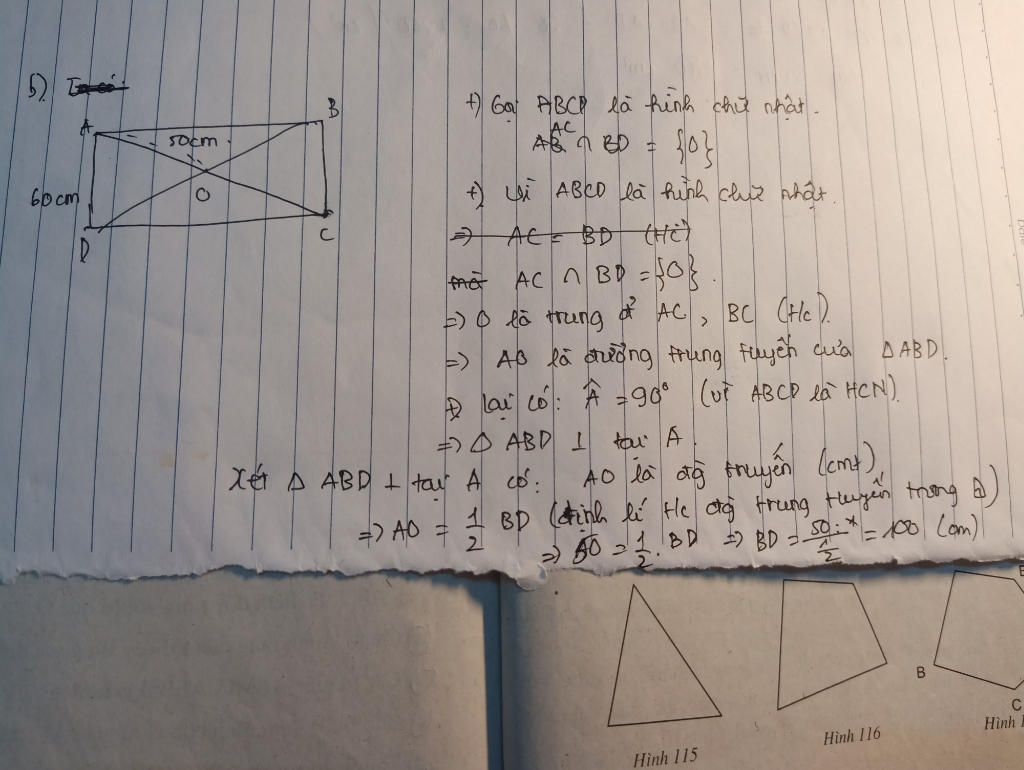 b)
A
B
50cm.
60cm
O
D
C
+) Gọi ABCD là hình chữ nhật.
AC
AB ∩ BD = {O}
+) Vì ABCD là hình chữ nhật.
=) AC = BD (t/c)
mà AC ∩ BD = {O}.
=) O là trung đ' AC, BC (t/c).
=) AO là đường trung tuyến của ΔABD.
lại có: Â = 90° (vì ABCD là HCN).
=) Δ ABD ⊥ tại A.
Xét Δ ABD ⊥ tại A có: AO là đg truyến (cmt)
=) AO = 1/2 BD (định lí t/c đg trung tuyến trong Δ)
=) 50 = 1/2 . BD =) BD = 50 : 1/2 = 100 (cm)
B
C
Hình 115
Hình 116
Hình 1